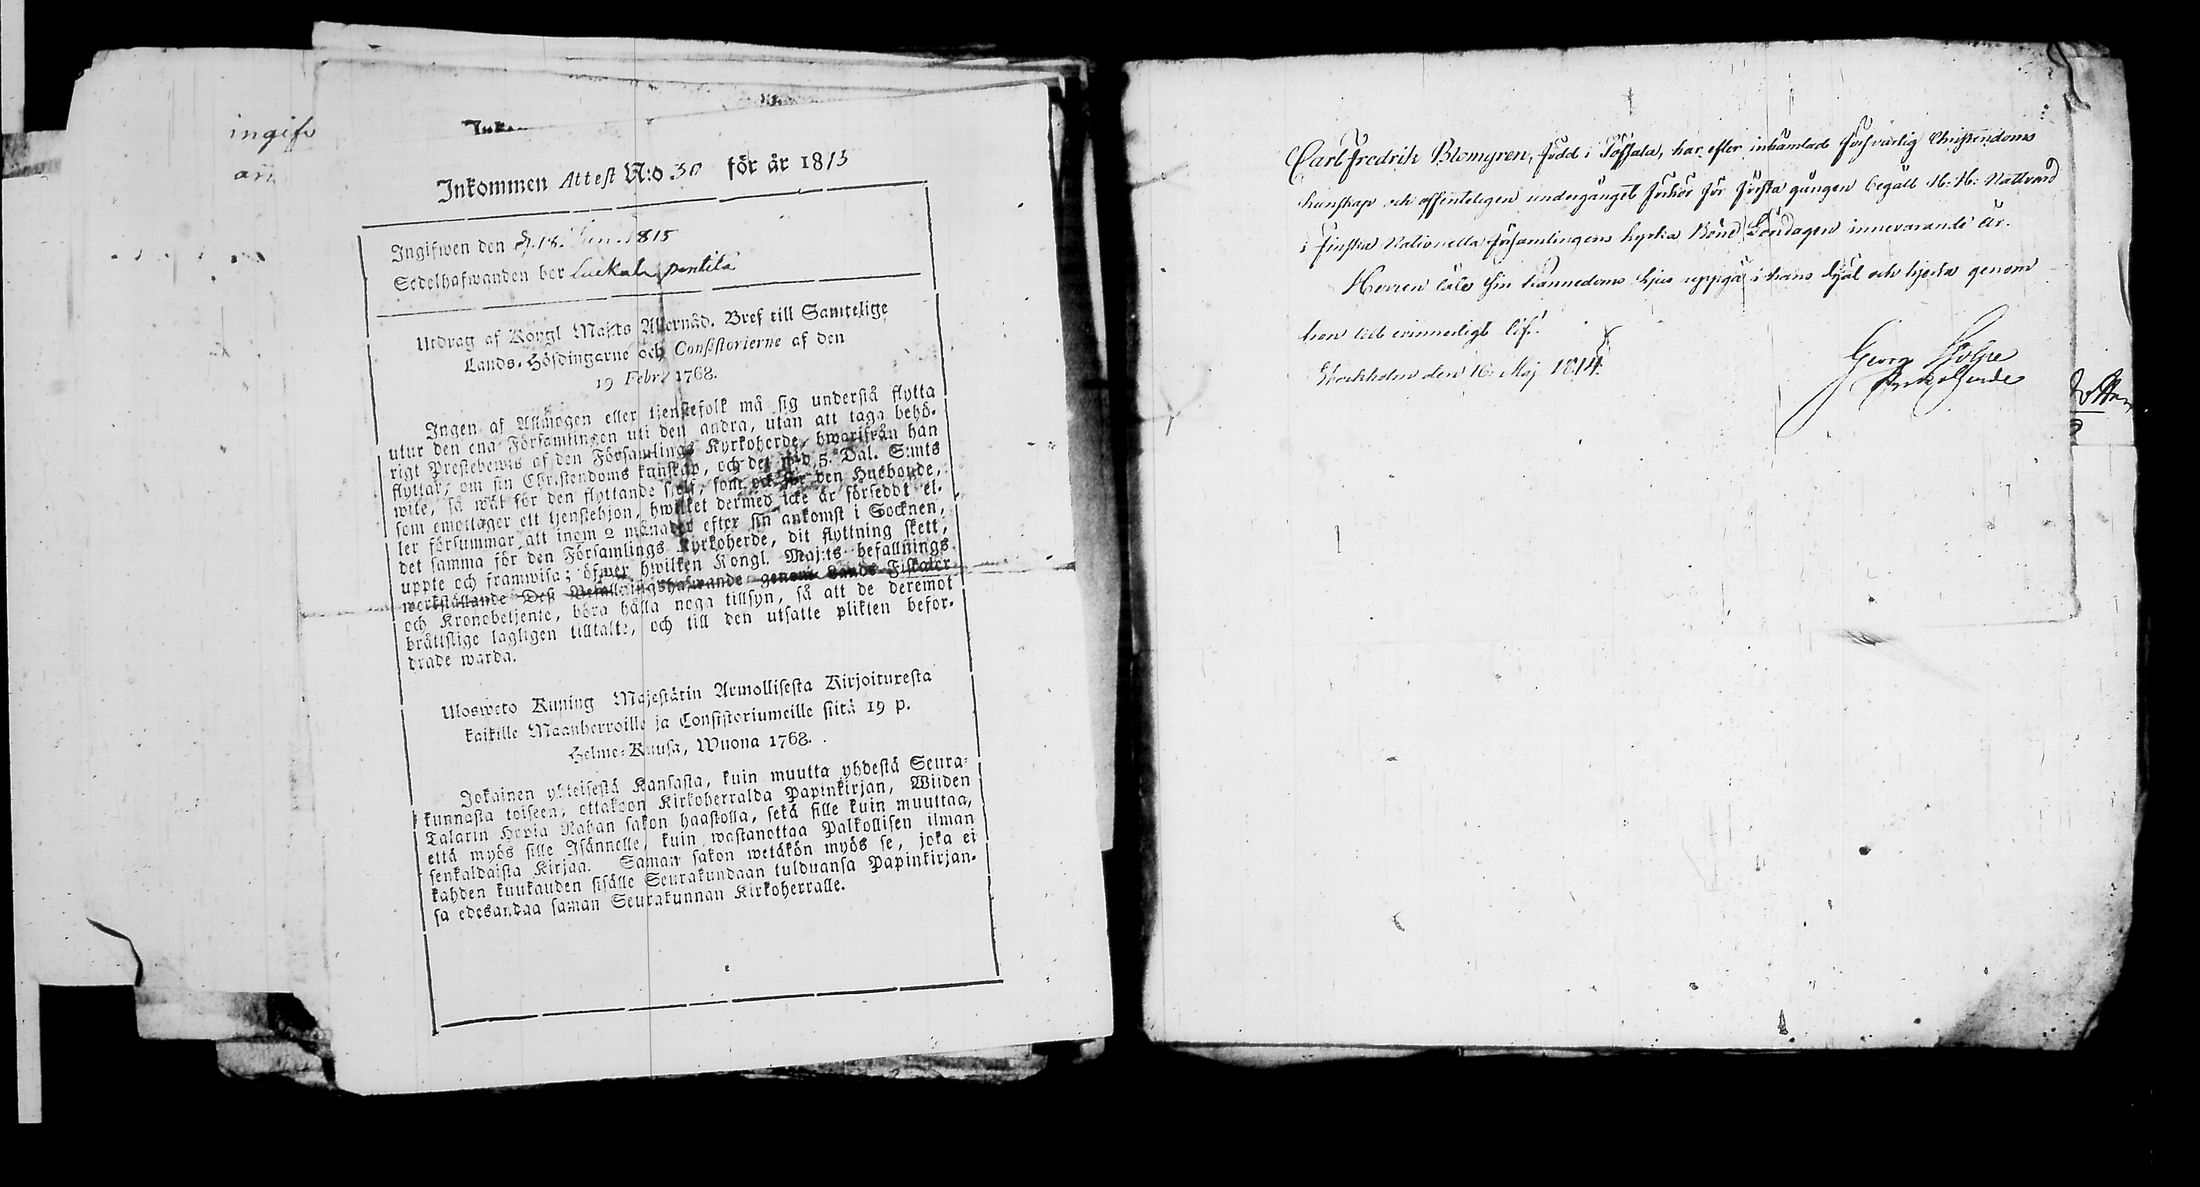 ingifv
an
Inkommen Attest N:o 30 för år 1815
Ingifwen den d. 18. Jun. 1815
Sedelhafwanden bor Luekala pentilä
Utdrag af Kongl Maj:ts Allernåd. Bref till Samtelige
Lands-Höfdingarne och Consistorierne af den
19 Febr. 1768.
Ingen af Allmogen eller tjenstefolk må sig understå flytta
utur den ena Församlingen uti den andra, utan att taga behö-
rigt Prestebewis af den Församlings Kyrkoherde, hwarifrån han
flyttar, om sin Christendoms kunskap, och det wid 5. Dal. S:mts
wite, så wäl för den flyttande sjelf, som ock för den Husbonde,
som emottager ett tjenstehjon, hwilket dermed icke är försedt el-
ler försummar att inom 2 månader efter sin ankomst i Socknen,
det samma för den Församlings Kyrkoherde, dit flyttning skett,
uppte och framwisa; öfwer hwilken Kongl. Maj:ts befallnings
werkställande Deß Befallningshafwande genom Lands Fiskaler
och Kronobetjente, böra hålla noga tillsyn, så att de deremot
bråttslige lagligen tilltalte, och till den utsatte plikten befor-
drade warda.
Ulosweto Kuning Majestätin Armollisesta Kirjoituxesta
kaikille Maanherroille ja Consistoriumeille siitä 19 p.
Helme-Kuusa, Wuona 1768.
Jokainen yhteisestä Kansasta, kuin muutta yhdestä Seura-
kunnasta toiseen, ottakoon Kirkoherralda Papinkirjan, Wiiden
Talarin Hopia Rahan sakon haastolla, sekä sille kuin muuttaa,
että myös sille Isännelle, kuin wastanottaa Palkollisen ilman
senkaldaista Kirjaa. Saman sakon wetäkön myös se, joka ei
kahden kuukauden sisälle Seurakundaan tulduansa Papinkirjan-
sa edesandaa saman Seurakunnan Kirkoherralle.
Carl Fredrik Blomgren, född i Töfsala, har efter inhämtad försvarlig Christendoms
kunskap och offenteligen undergånget förhör för första gången begått H: H: Nattvard
i Finska Nationella församlingens kyrka Böne Söndagen innevarande år.
Herren låte sin kännedoms ljus uppgå i hans själ och hjerta genom
hren till evinnerligt lif!
Stockholm den 16. Maj 1814.
Georg
Kyrkoherde